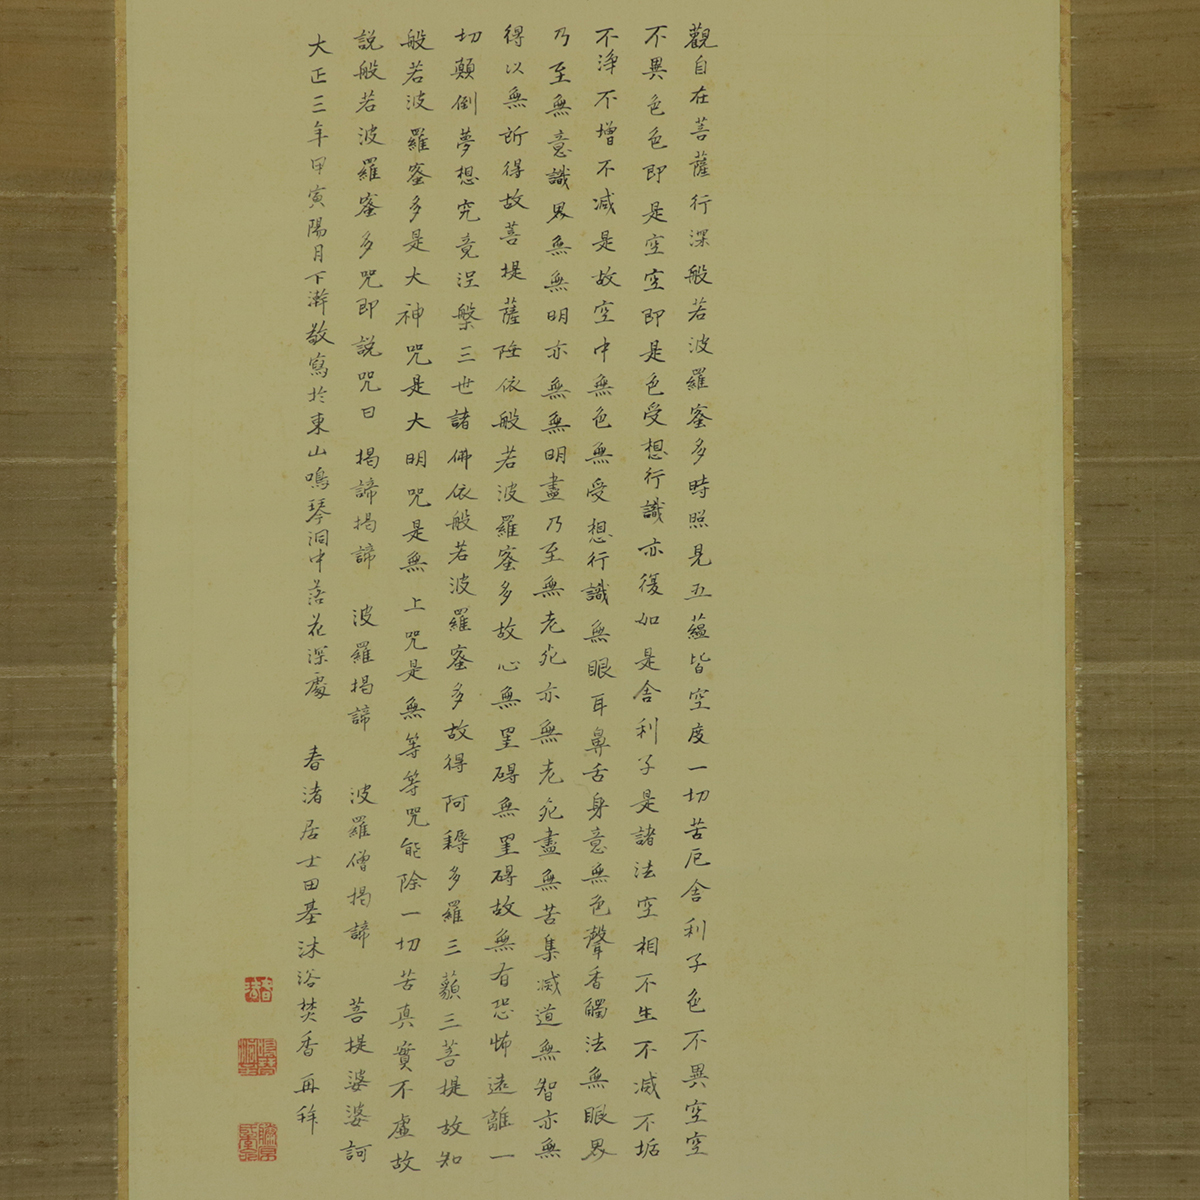 觀自在菩薩行深般若波羅蜜多時照見五蘊皆空度一切苦厄舍利子色不異空空
不異色色即是空空即是色受想行識亦復如是舍利子是諸法空相不生不滅不垢
不淨不增不減是故空中無色無受想行識無眼耳鼻舌身意無色聲香觸法無眼界
乃至無意識界無無明亦無無明盡乃至無老死亦無老死盡無苦集滅道無智亦無
得以無所得故菩提薩陲依般若波羅蜜多故心無罣碍無罣碍故無有恐怖遠離一
切顛倒夢想究竟涅槃三世諸佛依般若波羅蜜多故得阿耨多羅三藐三菩提故知
般若波羅蜜多是大神咒是大明咒是無上咒是無等等咒能除一切苦真實不虛故
說般若波羅蜜多咒即說咒曰 揭諦揭諦 波羅揭諦 波羅僧揭諦 菩提婆婆訶
大正三年甲寅陽月下澣敬寫於東山鳴琴洞中落花深處 春渚居士田基沐浴焚香再拜